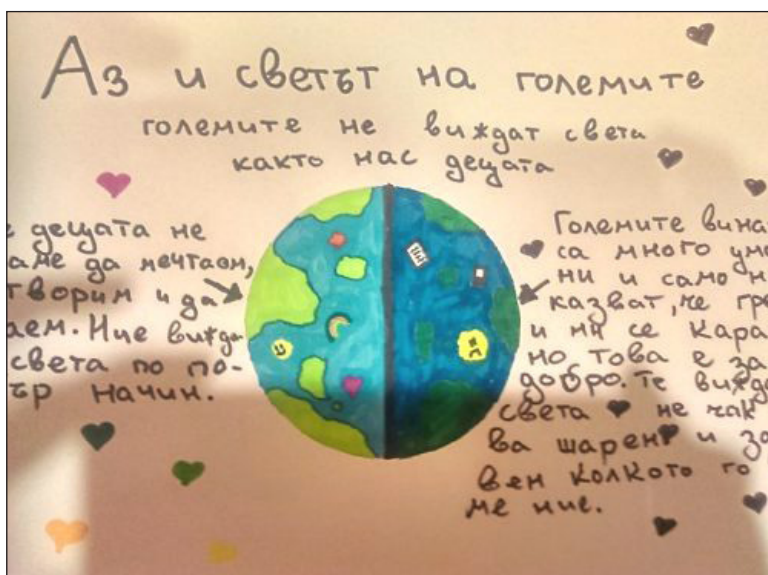 Аз и светът на големите
големите не виждат света
както нас децата
е децата не
аме да мечтаем,
творим и да
аем. Ние вижда
света по по-
ър начин.
Големите вина
са много умо
ни и само н
казват, че гре
и ни се кара
но това е за
добро. Те вижда
света не чак
ва шарен и за
вен колкото го
ме ние.